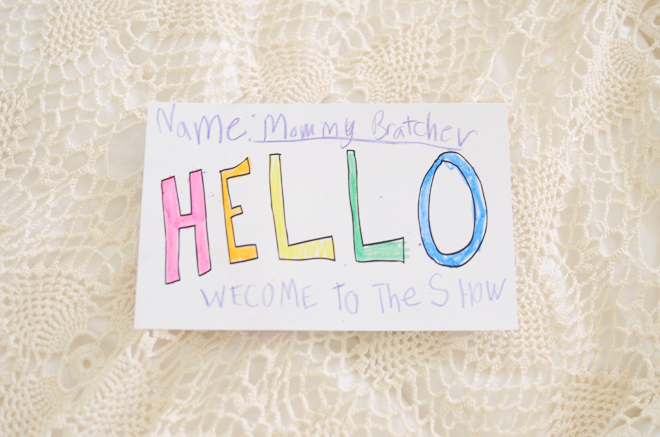 Name: Mommy Bratcher
HELLO
WECOME to The SHOW